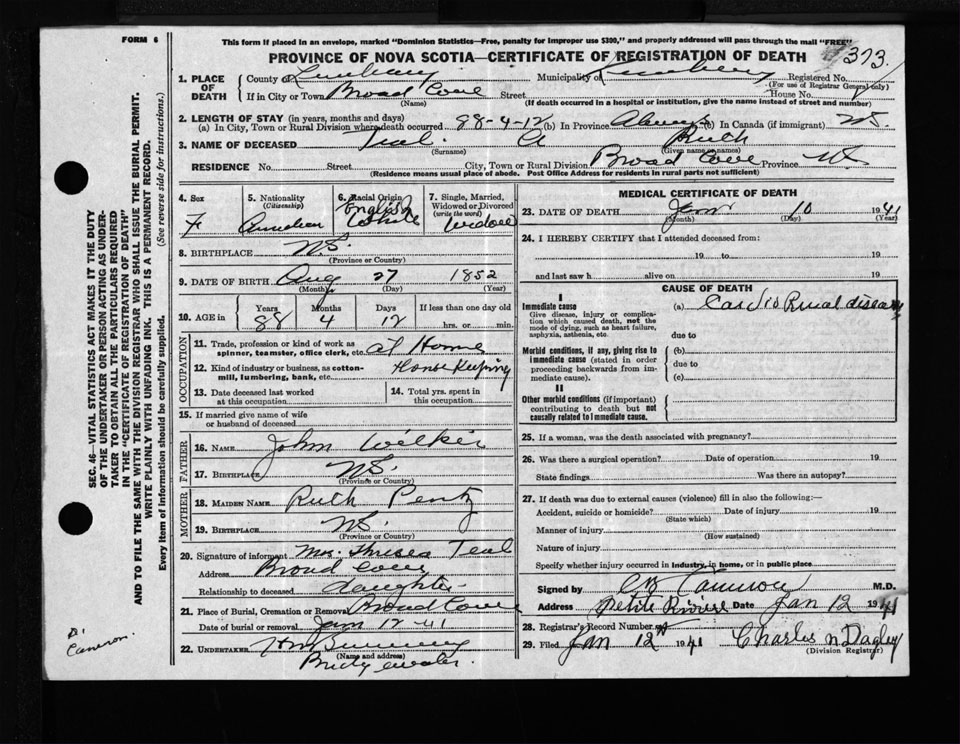 FORM 6
This form if placed in an envelope, marked "Dominion Statistics—Free, penalty for improper use $300," and properly addressed will pass through the mail "FREE"
PROVINCE OF NOVA SCOTIA—CERTIFICATE OF REGISTRATION OF DEATH
373.
1. PLACE OF DEATH County of Lunenburg Municipality of Lunenburg Registered No.
(For use of Registrar General only)
If in City or Town Broad Cove Street House No.
(Name) (If death occurred in a hospital or institution, give the name instead of street and number)
2. LENGTH OF STAY (in years, months and days)
(a) In City, Town or Rural Division where death occurred 88-4-12 (b) In Province Always (c) In Canada (if immigrant) NS
3. NAME OF DECEASED Teal A Ruth
(Surname) (Given name or names)
RESIDENCE No. Street City, Town or Rural Division Broad Cove Province NS
(Residence means usual place of abode. Post Office Address for residents in rural parts not sufficient)
4. Sex F
5. Nationality (Citizenship) Canadian
6. Racial Origin English White
7. Single, Married, Widowed or Divorced (write the word) Widow
8. BIRTHPLACE N.S.
(Province or Country)
9. DATE OF BIRTH Aug 27 1852
(Month) (Day) (Year)
10. AGE in Years 88 Months 4 Days 12 If less than one day old hrs. or min.
OCCUPATION
11. Trade, profession or kind of work as spinner, teamster, office clerk, etc. at Home
12. Kind of industry or business, as cotton-mill, lumbering, bank, etc. House Keeping
13. Date deceased last worked at this occupation
14. Total yrs. spent in this occupation
15. If married give name of wife or husband of deceased
FATHER
16. NAME John Wilkie
17. BIRTHPLACE N.S.
(Province or Country)
MOTHER
18. MAIDEN NAME Ruth Pentz
19. BIRTHPLACE N.S.
(Province or Country)
20. Signature of informant Mrs. Theresa Teal
Address Broad Cove
Relationship to deceased daughter
21. Place of Burial, Cremation or Removal Broad Cove
Date of burial or removal Jan 12-41
22. UNDERTAKER
(Name and address)
MEDICAL CERTIFICATE OF DEATH
23. DATE OF DEATH Jan 10 1941
(Month) (Day) (Year)
24. I HEREBY CERTIFY that I attended deceased from:
19 to 19
and last saw h alive on 19
CAUSE OF DEATH
I
Immediate cause (a) Cardio Renal disease
Give disease, injury or complication which caused death, not the mode of dying, such as heart failure, asphyxia, asthenia, etc.
due to
Morbid conditions, if any, giving rise to immediate cause (stated in order proceeding backwards from immediate cause). (b)
due to
(c)
II
Other morbid conditions (if important) contributing to death but not causally related to immediate cause.
25. If a woman, was the death associated with pregnancy?
26. Was there a surgical operation? Date of operation 19
State findings Was there an autopsy?
27. If death was due to external causes (violence) fill in also the following:—
Accident, suicide or homicide? Date of injury 19
(State which)
Manner of injury
(How sustained)
Nature of injury
Specify whether injury occurred in industry, in home, or in public place
Signed by Cameron M.D.
Address Petite Riviere Date Jan 12 1941
28. Registrar's Record Number
29. Filed Jan 12th 1941 Charles N Dagley
(Division Registrar)
SEC. 46—VITAL STATISTICS ACT MAKES IT THE DUTY
OF THE UNDERTAKER OR PERSON ACTING AS UNDER-
TAKER TO OBTAIN ALL THE PARTICULARS REQUIRED
IN THE "CERTIFICATE OF REGISTRATION OF DEATH"
AND TO FILE THE SAME WITH THE DIVISION REGISTRAR WHO SHALL ISSUE THE BURIAL PERMIT.
WRITE PLAINLY WITH UNFADING INK. THIS IS A PERMANENT RECORD.
Every item of information should be carefully supplied. (See reverse side for instructions.)
Dr
Cameron.